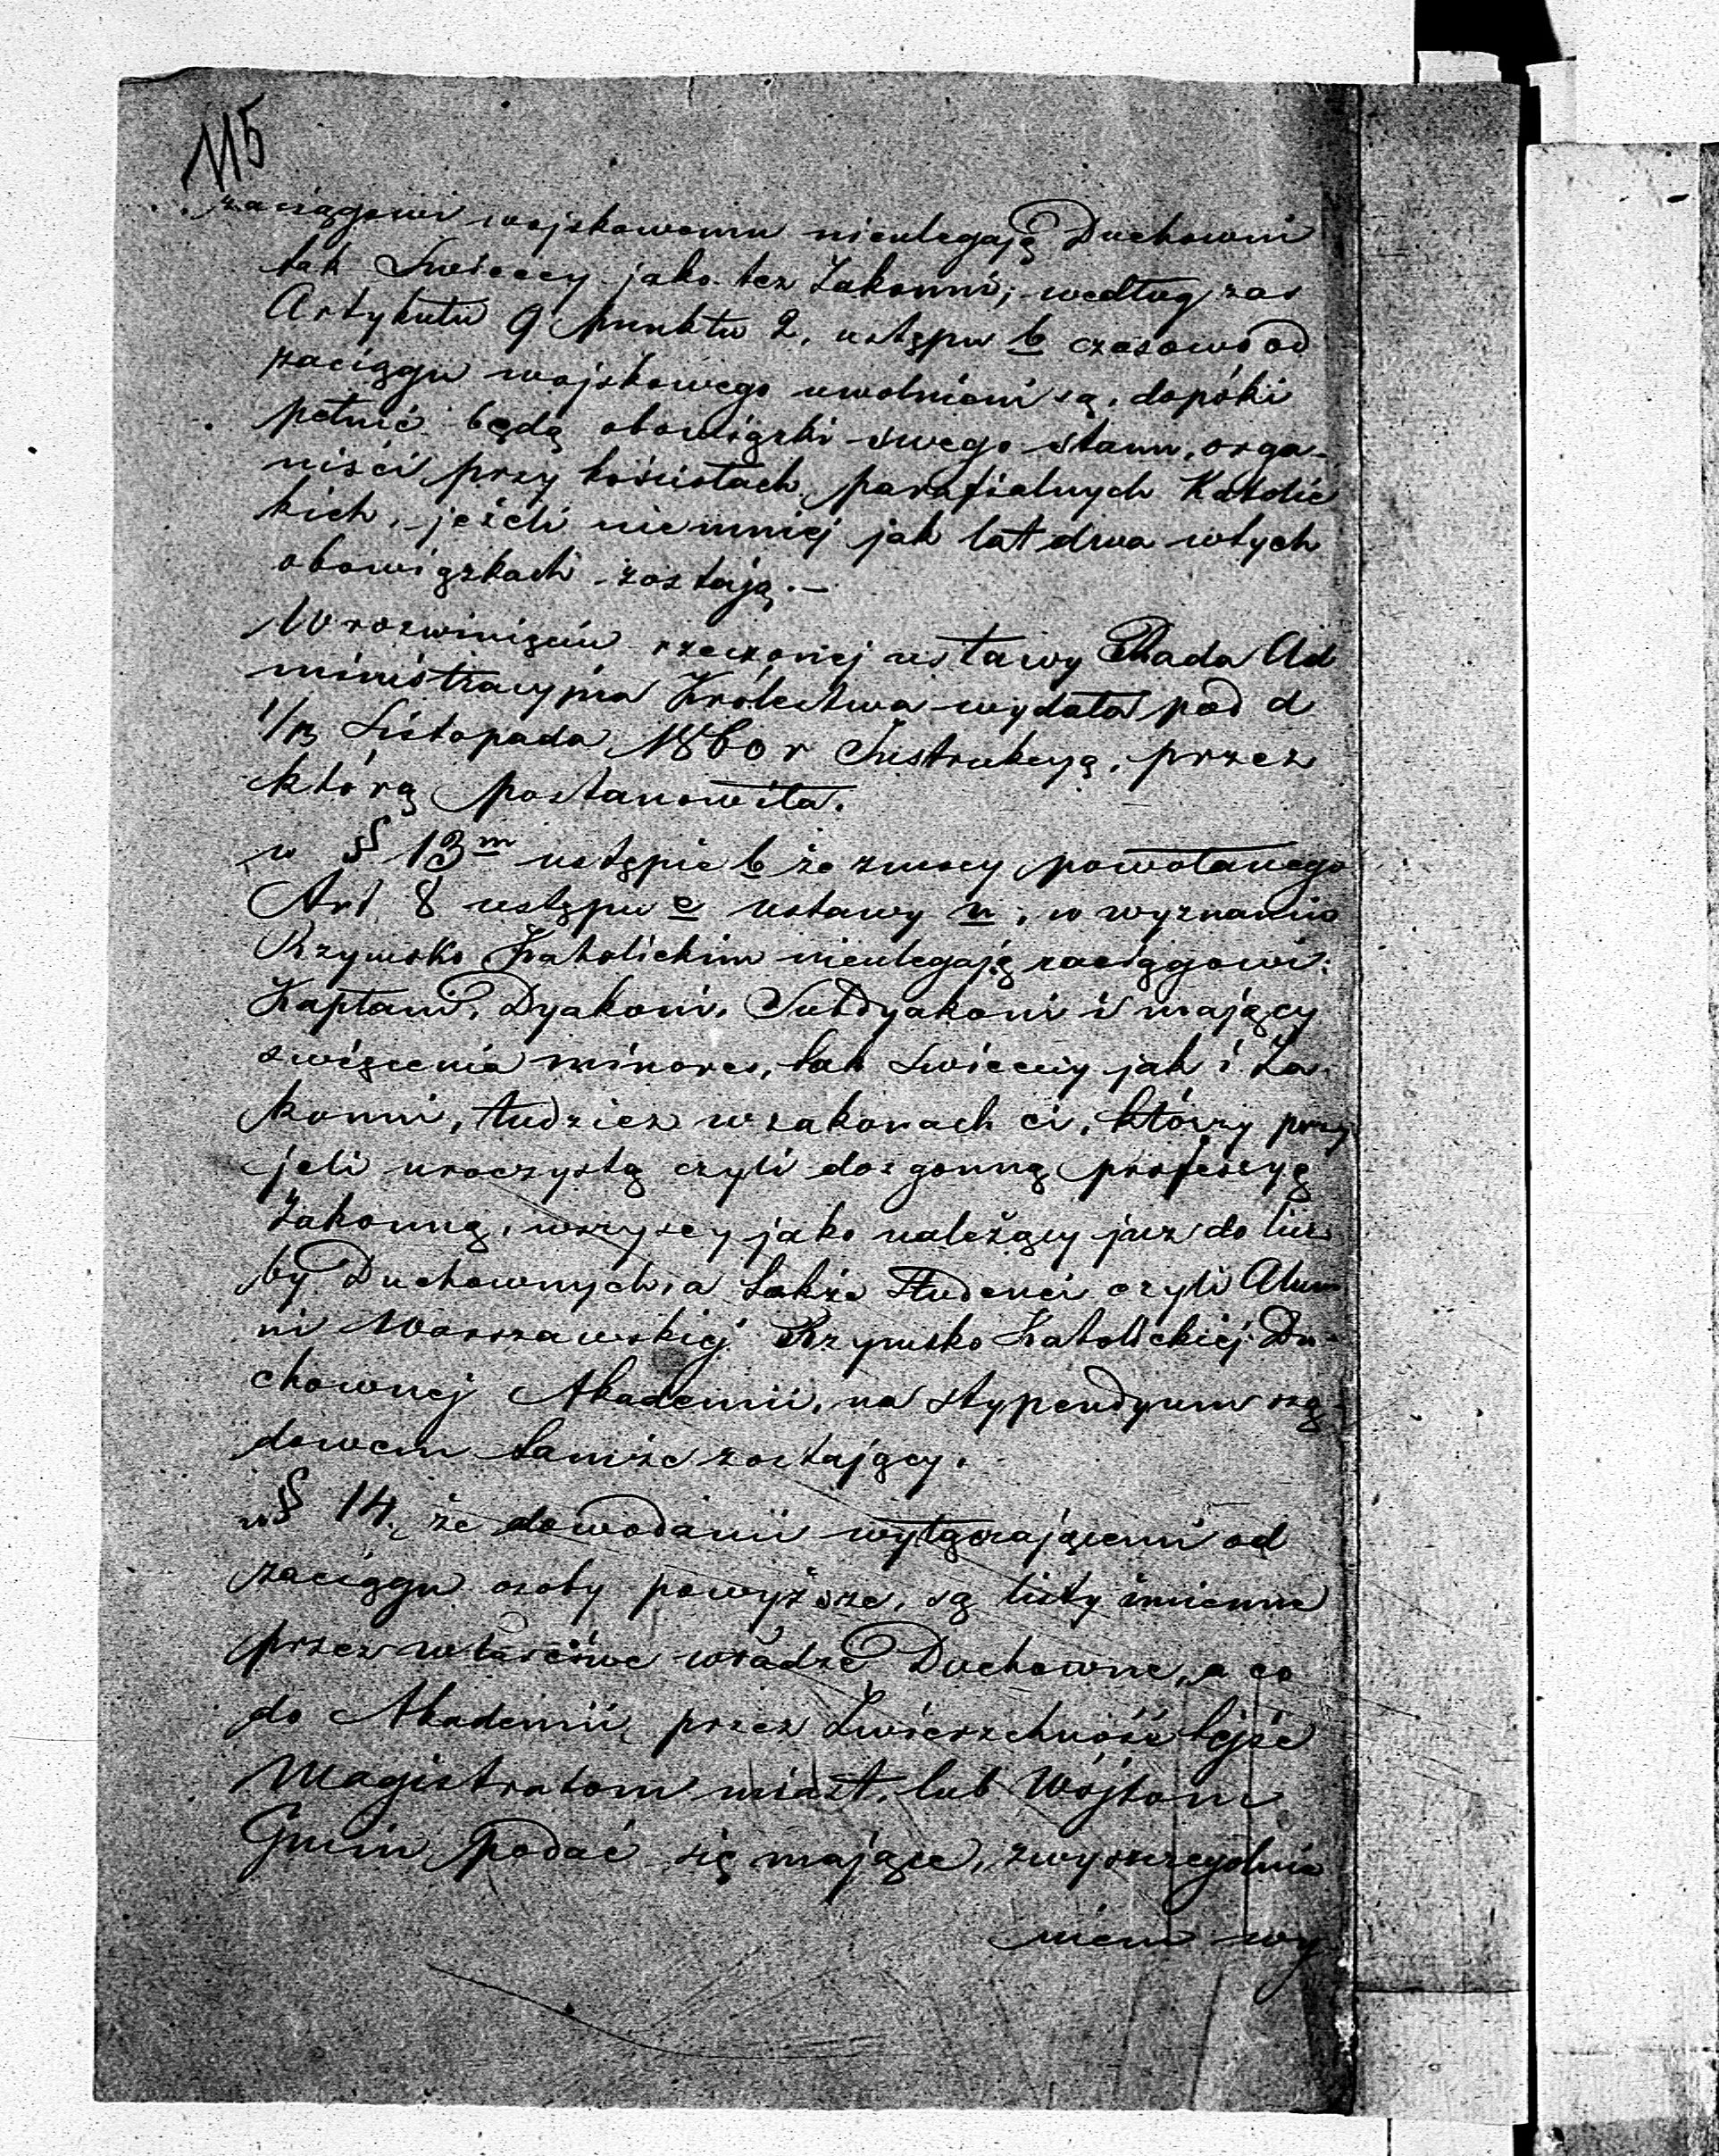 115
zaciągowi wojskowemu nieulegają Duchowni
tak Swieccy jako tez Zakonni; według zas
Artykułu 9 punktu 2, ustępu b czasowo od
zaciągu wojskowego uwolnieni są, dopóki
pełnić będą obowiązki swego stanu, orga-
niści przy kościołach parafialnych Katolic
kich, jeżeli niemniej jak lat dwa wtych
obowiązkach zostają.–
W rozwinięciu rzeczonej ustawy Rada Ad
ministracyjna Królestwa wydała pod d
1/13 Listopada 1860 r Instrukcyą, przez
którą postanowiła.
w § 13m ustępie b że zmocy powołanego
Art 8 ustępu c ustawy n, w wyznaniu
Rzymsko Katolickim nieulegają zaciągowi:
Kapłani, Dyakoni, Subdyakoni i mający
swięcenia minores, tak Swieccy jak i Za-
konni, tudzież w zakonach ci, którzy przy
jeli uroczystą czyli dozgonną professyą
Zakonną, wszyscy jako należący juz do licz
by Duchownych, a także Studenci czyli Alum
ni Warszawskiej Rzymsko Katolickiej Du-
chownej Akademii, na stypendyum rzą-
dowem tamże zostający.
w § 14, że dowodami wyłączającemi od
zaciągu osoby powyższe, są listy imienne
przez właściwe władze Duchowne, a co
do Akademii przez Zwierzchność tejże
Magistratom miast, lub Wójtom
Gmin podać się mające, zwyszczegolnie
niem wy